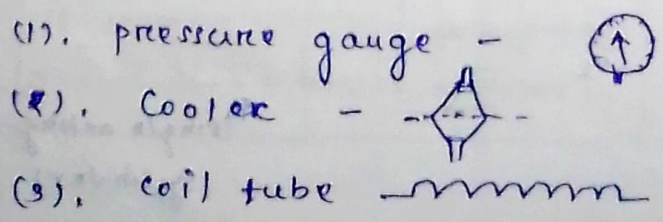 (1). pressure gauge -
(2). Cooler -
(3). coil tube